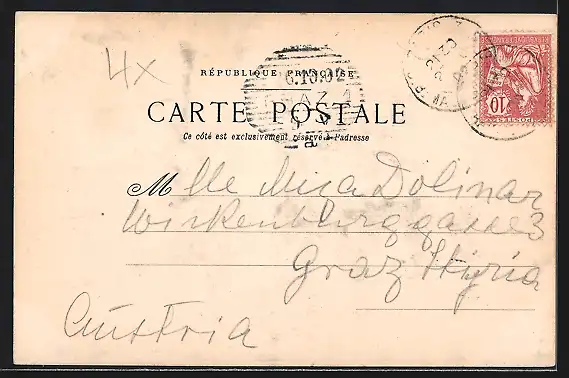 4x
RÉPUBLIQUE FRANÇAISE
6.10.02
GRAZ 1
CARTE POSTALE
Ce côté est exclusivement réservé à l'adresse
Mlle Mica Dolinar
Wickenburggasse 3
Graz Styria
Austria
10
POSTES